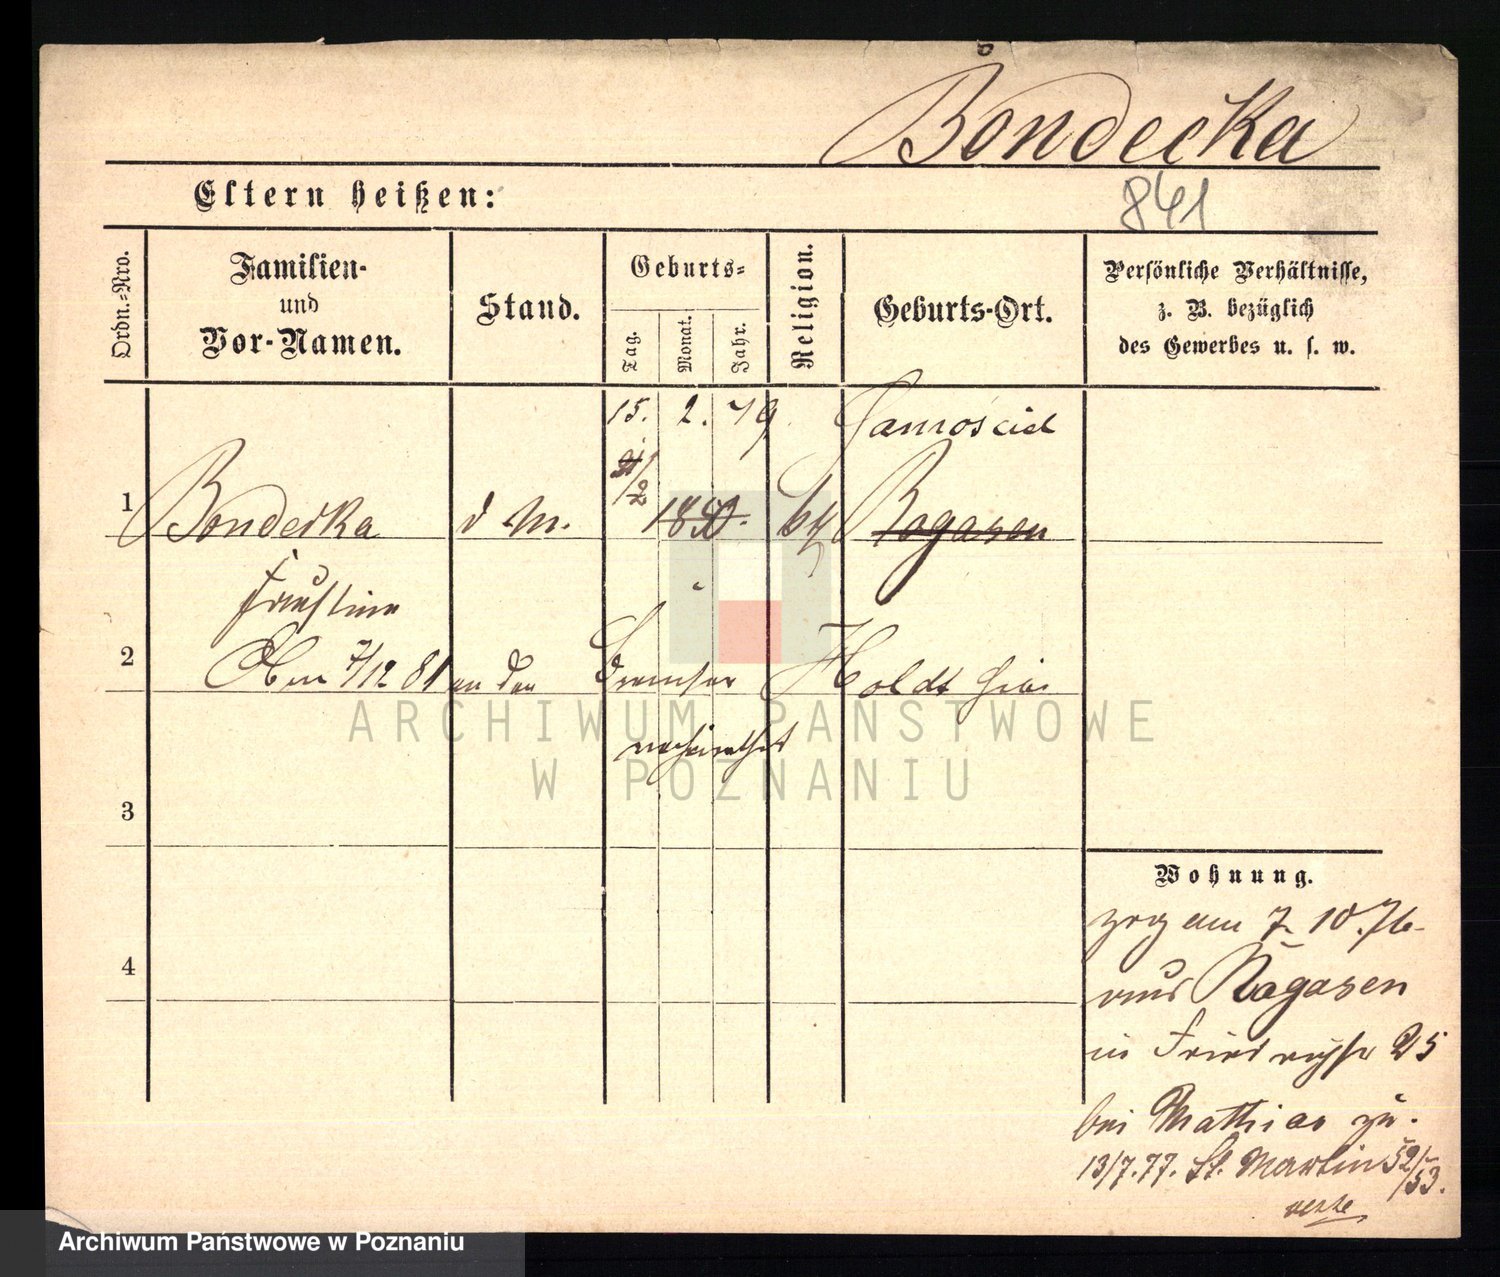 Bondecka
841
Eltern heißen:
Ordn.-Nro.
Familien-
und
Vor-Namen.
Stand.
Geburts-
Tag.
Monat.
Jahr.
Religion.
Geburts-Ort.
Persönliche Verhältnisse,
z. B. bezüglich
des Gewerbes u. s. w.
15. 2. 79. Samoscid
1 Bondecka d M. 21/2 1850. kt Rogasen
Faustine
2 7/12 81 an den Holdt hier
verheirathet
3
4
Wohnung.
zog am 7. 10. 76
aus Rogasen
in Friedrichstr 25
bei Mathias zu.
13/7.77. St. Martin 52/53.
ARCHIWUM PAŃSTWOWE
W POZNANIU
Archiwum Państwowe w Poznaniu